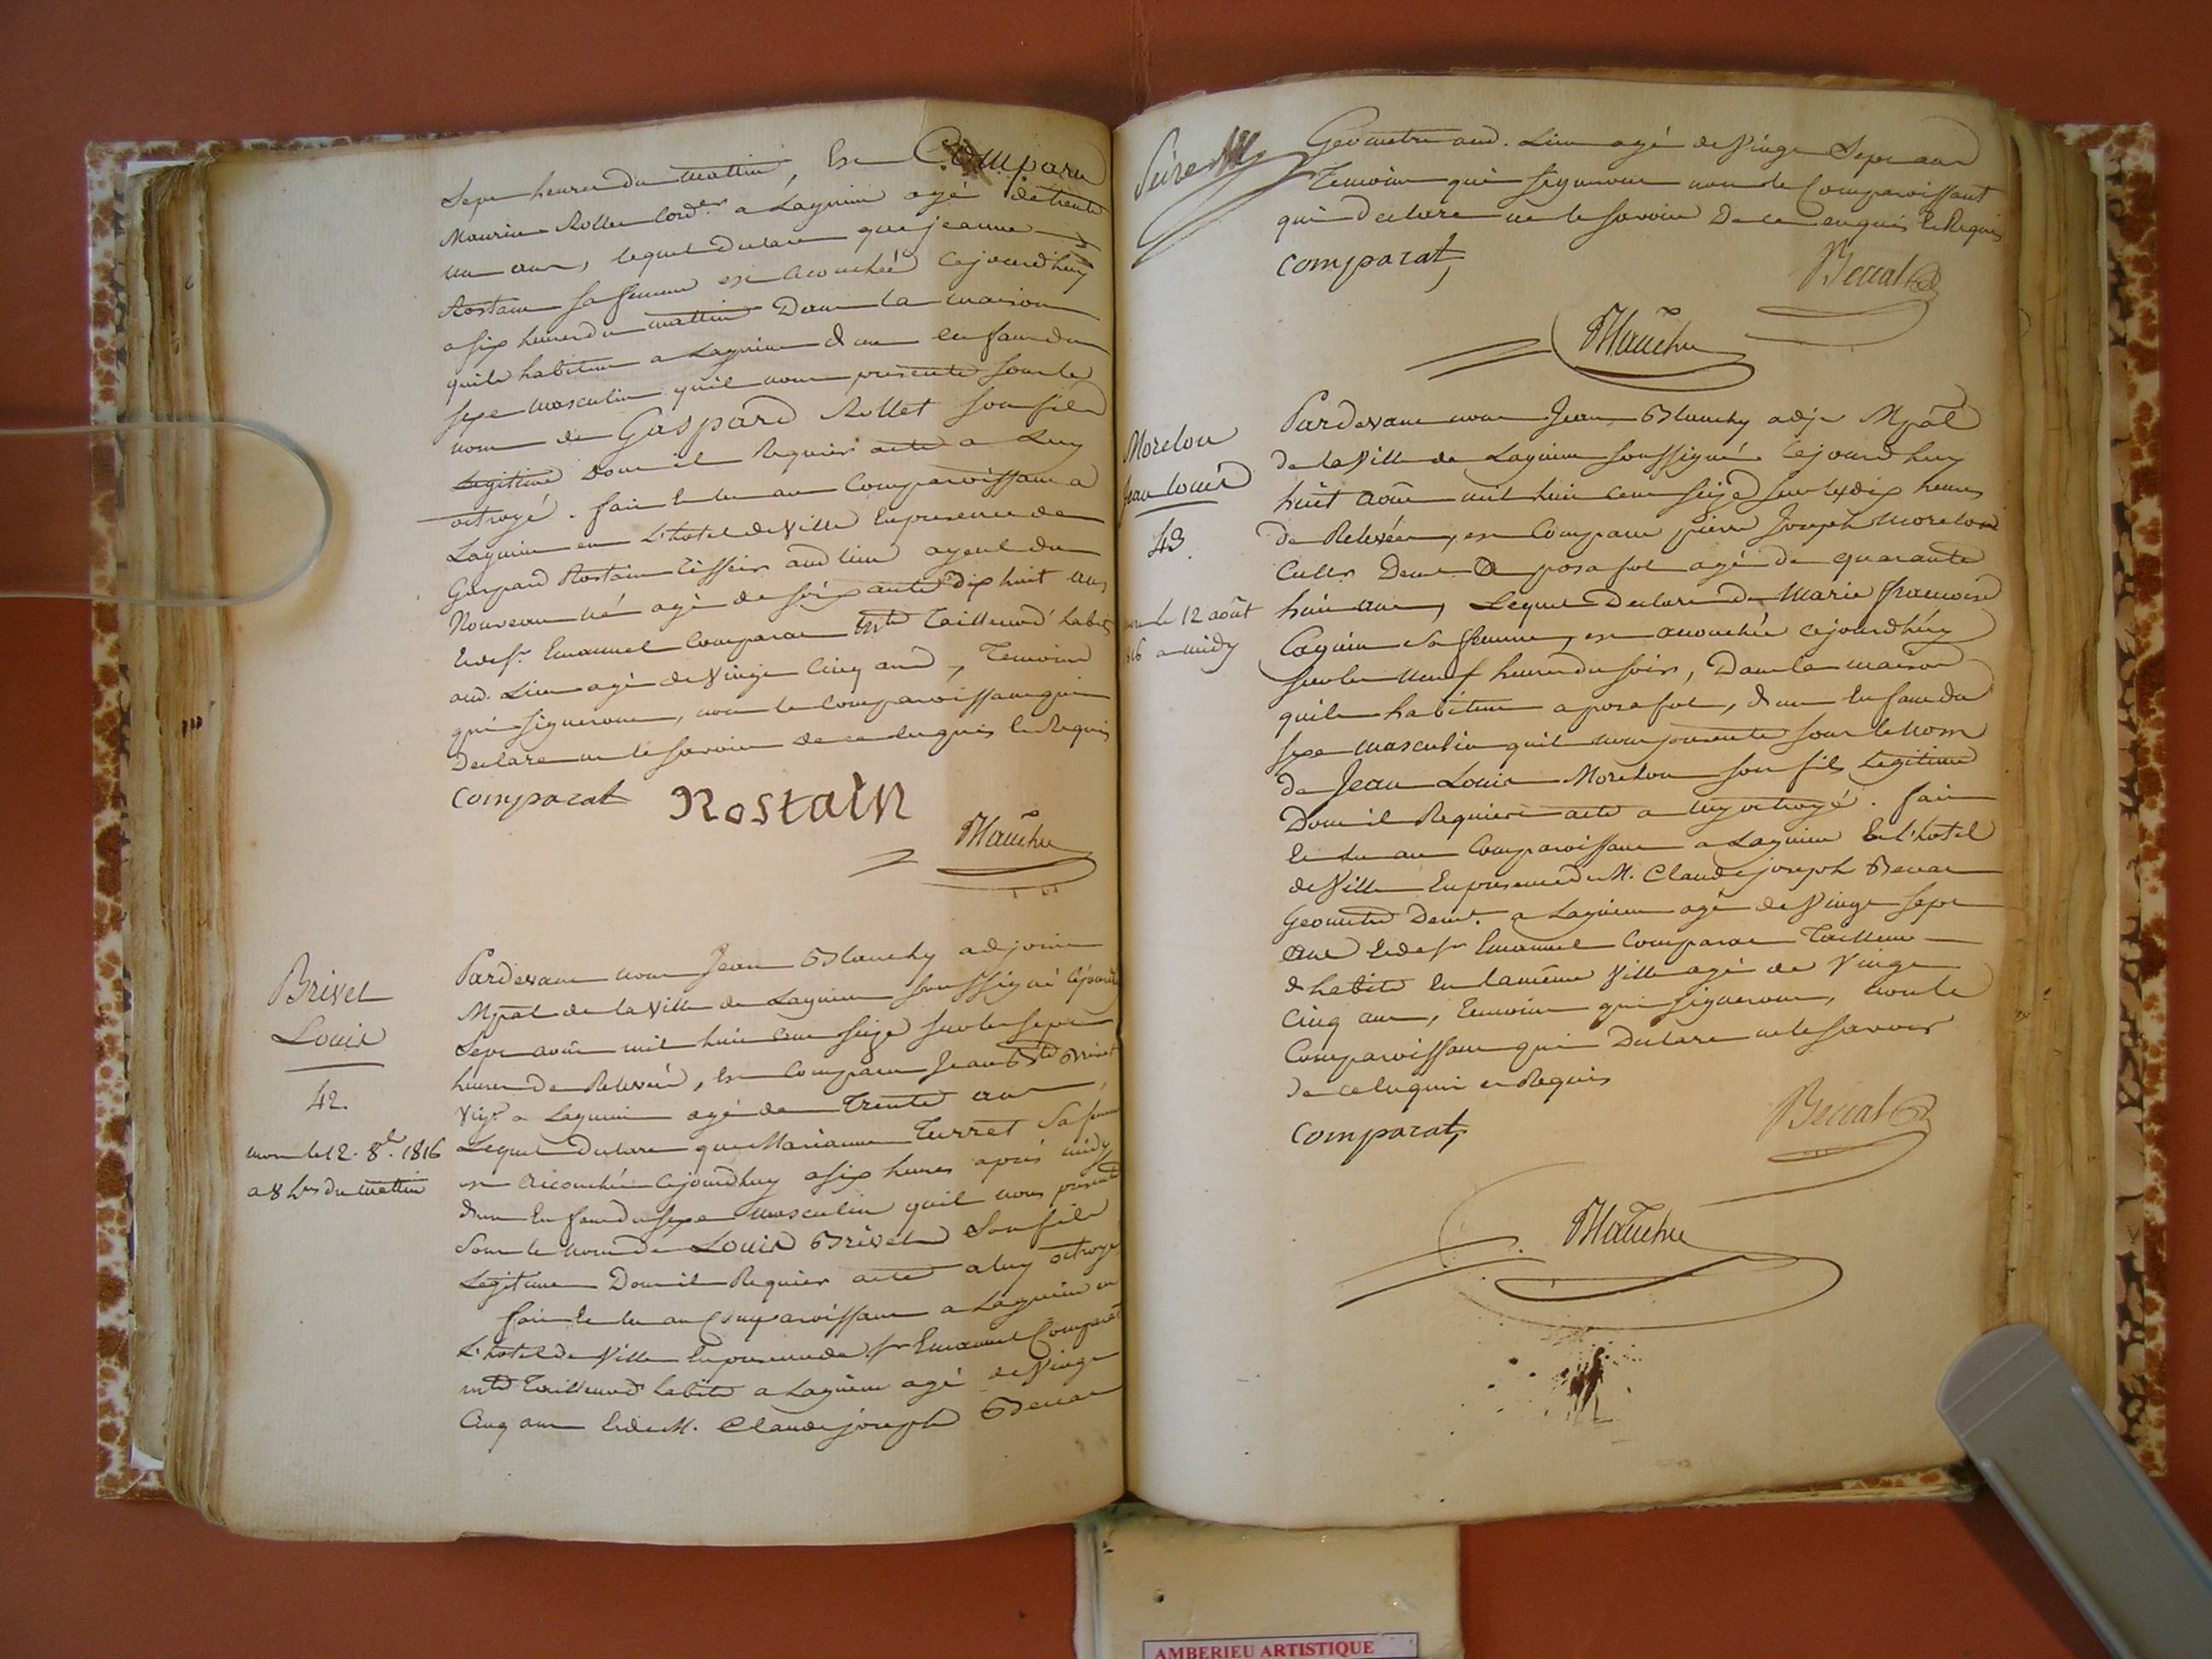 Sept heures du mattin, Est Comparu
Maurice Rollet cord.er a Lagnieu agé de trente
un ans, lequel declare que jeanne
Rostain sa femme est acouchée cejourdhuy
a six heures du mattin Dans la maison
quils habitent a Lagnieu d'un enfant du
sexe masculin quil nous presente sous le
nom de Gaspard Rollet son fils
Legitime Dont il Requiert acte a Luy
octroyé. fait et lu au Comparoissant a
Lagnieu en L'hotel de Ville En presence de
Gaspard Rostain tissier aud lieu ayeul du
Nouveau né agé de soixante dix huit ans
et de sr. Emanuel Comparat md Tailleur d'habits
aud. Lieu agé de Vingt Cinq ans, Temoins
qui signeront, non le Comparoissant qui
Declare ne le savoir de ce Enquis et Requis
Comparat Rostain
Blanchy
Brivet
Louis
42.
mort le 12. 8.e 1816
a 8 hres du mattin
Pardevant nous Jean Blanchy adjoint
Mpal de la Ville de Lagnieu soussigné cejourdhuy
Sept août mil huit cent seize sur les sept
heures de Relevée, Est Comparu Jean Bte Brivet
Vig.n a Lagnieu agé de Trente ans,
Lequel Declare que Marianne Turret sa femme
est Acouchée cejourdhuy a six heures après midy
d'un Enfant du sexe masculin quil nous présente
Sous le nom de Louis Brivet Son fils
Legitime Dont il Requier acte a luy octroyé
fait et lu au Comparoissant a Lagnieu en
L'hotel de Ville En presence de sr Emanuel Comparat
md Tailleur d'habits a Lagnieu agé de Vingt
Cinq ans Et de M. Claude joseph Becat
Géometre aud. Lieu agé de Vingt Sept ans
Temoins qui signeront non le Comparoissant
qui declare ne le savoir De ce enquis et Requis
comparat
Becat
Blanchy
Morelon
Jean Louis
43.
mort le 12 août
1816 a midy
Pardevant nous Jean Blanchy adjt Mpal
de la Ville de Lagnieu soussigné Cejourdhuy
huit août mil huit cent seize sur les dix heures
de Relevée, est Comparu pierre Joseph Morelon
Cultr. Demt. A posafol agé de quarante
huit ans, Lequel Declare que Marie francoise
sa femme, est acouchée cejourdhuy
sur les neuf heures du soir, Dans la maison
quils habitent a posafol, d'un Enfant du
sexe masculin quil nous presente sous le nom
de Jean Louis Morelon son fils Legitime
Dont il Requiert acte a luy octroyé. fait
et lu au Comparoissant a Lagnieu En l'hotel
de Ville En presence de M. Claude joseph Becat
Geometre Demt. a Lagnieu agé de Vingt sept
ans et de sr Emanuel Comparat Tailleur
d'habits en la même Ville agé de Vingt
Cinq ans, Temoins qui signeront, non le
Comparoissant qui Declare ne le savoir
de ce Enquis et Requis
Comparat
Becat
Blanchy
AMBERIEU ARTISTIQUE